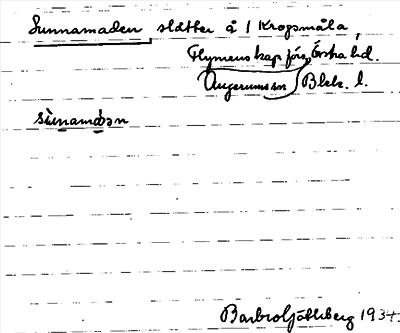 Sunnamaden slåtter å 1 Krogsmåla,
Flymens kap. förs, Östra hd.
Augerums sn Blek. l.
sùnamáɔn
Barbro Götlaberg 1934.